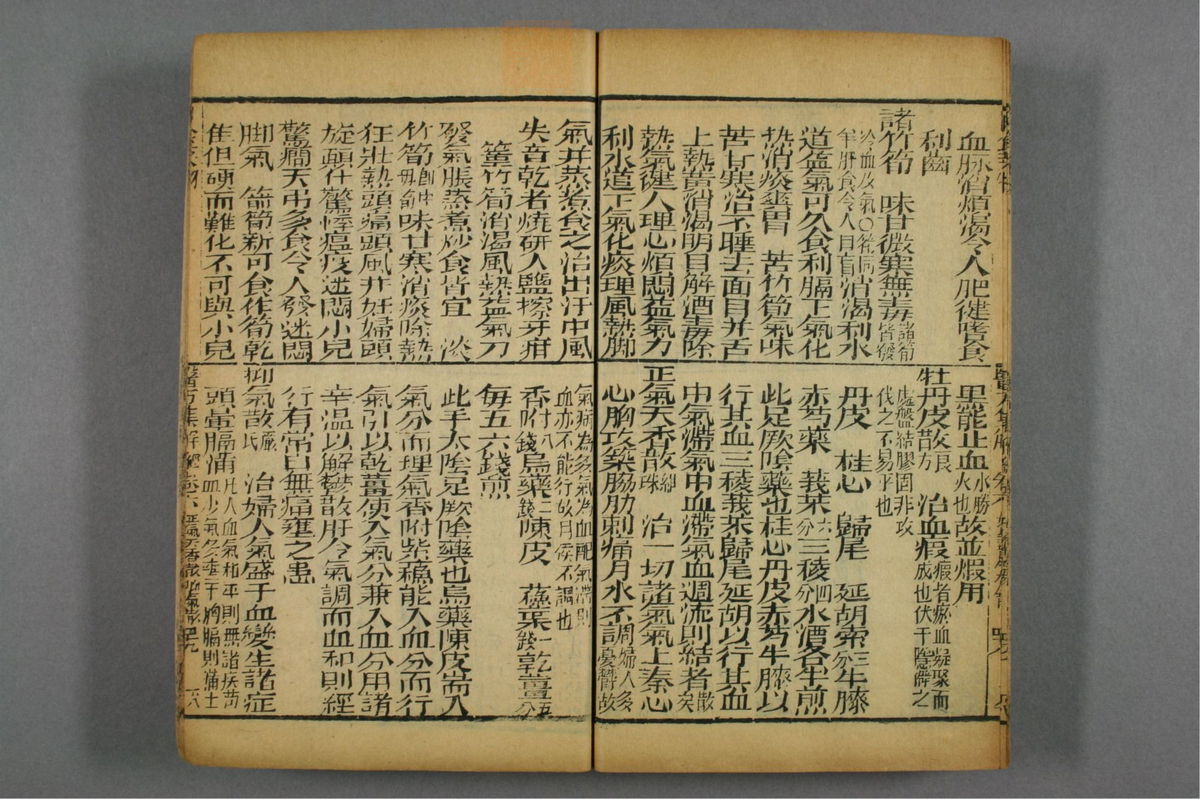 血脉消煩渴令人肥健嗜食
利齒
諸竹筍 味甘微寒無毒諸筍皆發
冷血及氣○筍同羊肝食令人目盲消渴利水
道益氣可久食利膈下氣化
熱消痰爽胃 苦竹筍氣味
苦甘寒治不睡去面目并舌
上熱黃消渴明目解酒毒除
熱氣健人理心煩悶益氣力
利水道下氣化痰理風熱脚
黑能止血水勝火也故並煅用
牡丹皮散良方 治血瘕瘕者瘀血凝聚而成也伏于隱僻之
處盤結膠固非攻伐之不易平也
丹皮 桂心 歸尾 延胡索三分牛膝
赤芍藥 莪朮六分三稜四分水酒各半煎
此足厥陰藥也桂心丹皮赤芍牛膝以
行其血三稜莪朮歸尾延胡以行其血
中氣滯氣中血滯氣血週流則結者散矣
正氣天香散紺珠 治一切諸氣氣上湊心
心胸攻築脇肋刺痛月水不調婦人多憂鬱故
氣并蒸煮食之治出汗中風
失音乾者燒研入鹽擦牙疳
簟竹筍消渴風熱益氣力
發氣脹蒸煮炒食皆宜 淡
竹筍味甘寒消痰除熱
狂壯熱頭痛頭風并妊婦頭
旋顛仆驚悸瘟疫迷悶小兒
驚癇天弔多食令人發迷悶
脚氣 箭筍新可食作筍乾
隹但硬而難化不可與小兒
氣病為多氣為血配氣滯則血亦不能行故月候不調也
香附八錢烏藥二錢陳皮 蘇葉一錢乾薑五分
每五六錢煎
此手太陰足厥陰藥也烏藥陳皮耑入
氣分而理氣香附紫蘇能入血分而行
氣引以乾薑使入氣分兼入血分用諸
辛溫以解鬱散肝令氣調而血和則經
行有常自無痛壅之患
抑氣散嚴氏 治婦人氣盛于血變生諸症
頭暈膈滿凡人血氣和平則無諸疾苦血少氣多壅于胸膈則滿上